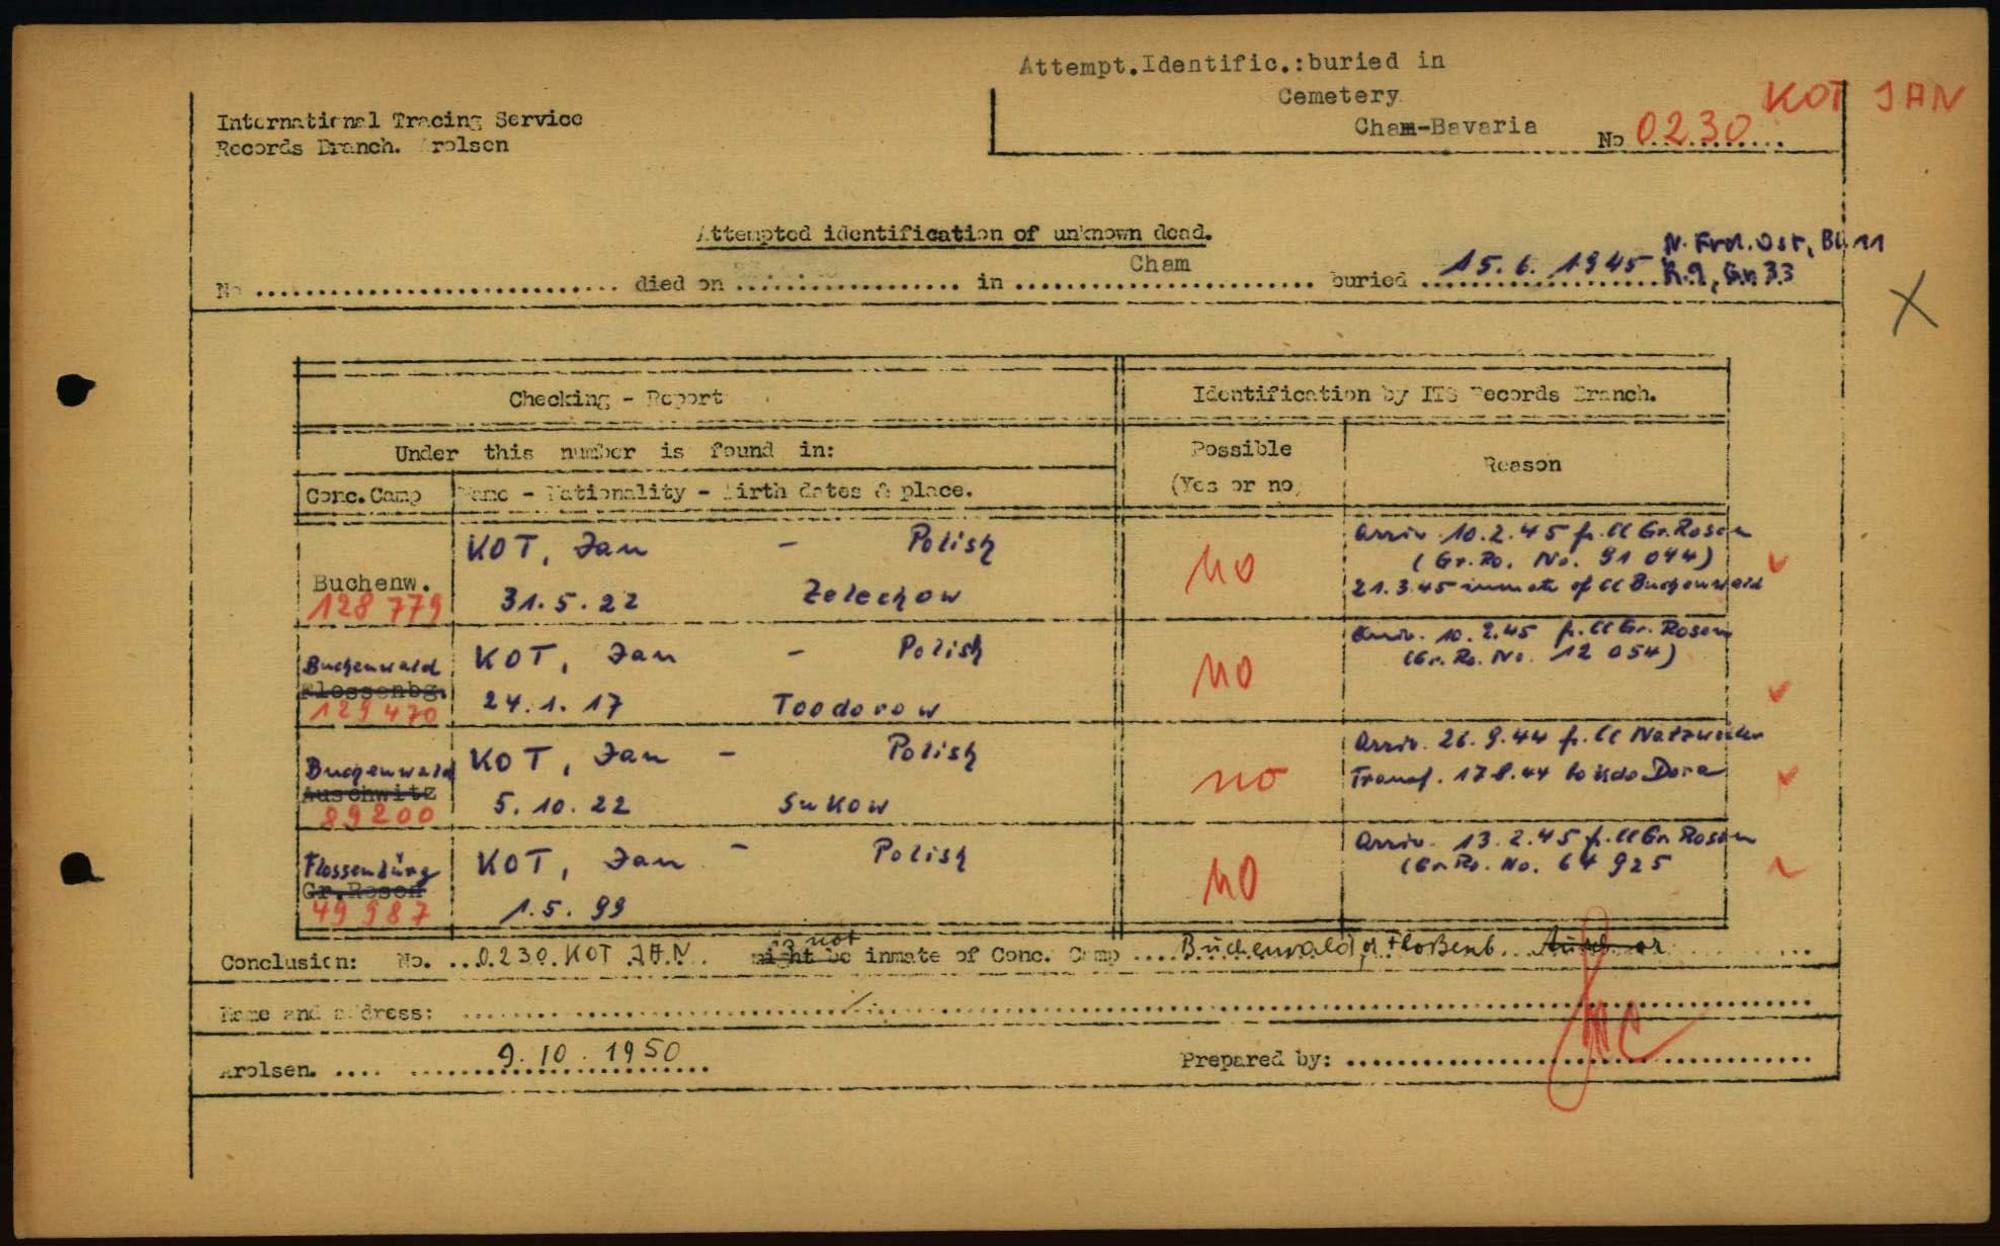 Attempt.Identific.:buried in
Cemetery
Cham-Bavaria
No 0230
KOT JAN
International Tracing Service
Records Branch. Arolsen
Attempted identification of unknown dead.
No ........ died on ........ in Cham buried 15.6.1945 N. Frd. Ost, Bl. 11
R.9, Gr. 33
Checking - Report
Identification by ITS Records Branch.
Under this number is found in:
Possible
(Yes or no)
Reason
Conc.Camp
Name - Nationality - Birth dates & place.
Buchenw.
128 779
KOT, Jan - Polish
31.5.22 Zelechow
no
Arriv. 10.2.45 f. CC Gr.Rosen
(Gr.Ro. No. 91 044)
21.3.45 inmate of CC Buchenwald
Buchenwald
Flossenbg.
129470
KOT, Jan - Polish
24.1.17 Toodorow
no
Arriv. 10.2.45 f. CC Gr. Rosen
(Gr. Ro. No. 12 054)
Buchenwald
Auschwitz
89200
KOT, Jan - Polish
5.10.22 Sukow
no
Arriv. 26.9.44 f. CC Natzweiler
Transf. 17.8.44 to Kdo Dora
Flossenbürg
Gr.Rosen
49987
KOT, Jan - Polish
1.5.99
no
Arriv. 13.2.45 f. CC Gr. Rosen
(Gr.Ro. No. 64 925
Conclusion: No. 0230. KOT JAN. might be is not inmate of Conc. Camp Buchenwald, Floßenb.
Name and address:
Arolsen. 9.10.1950
Prepared by: